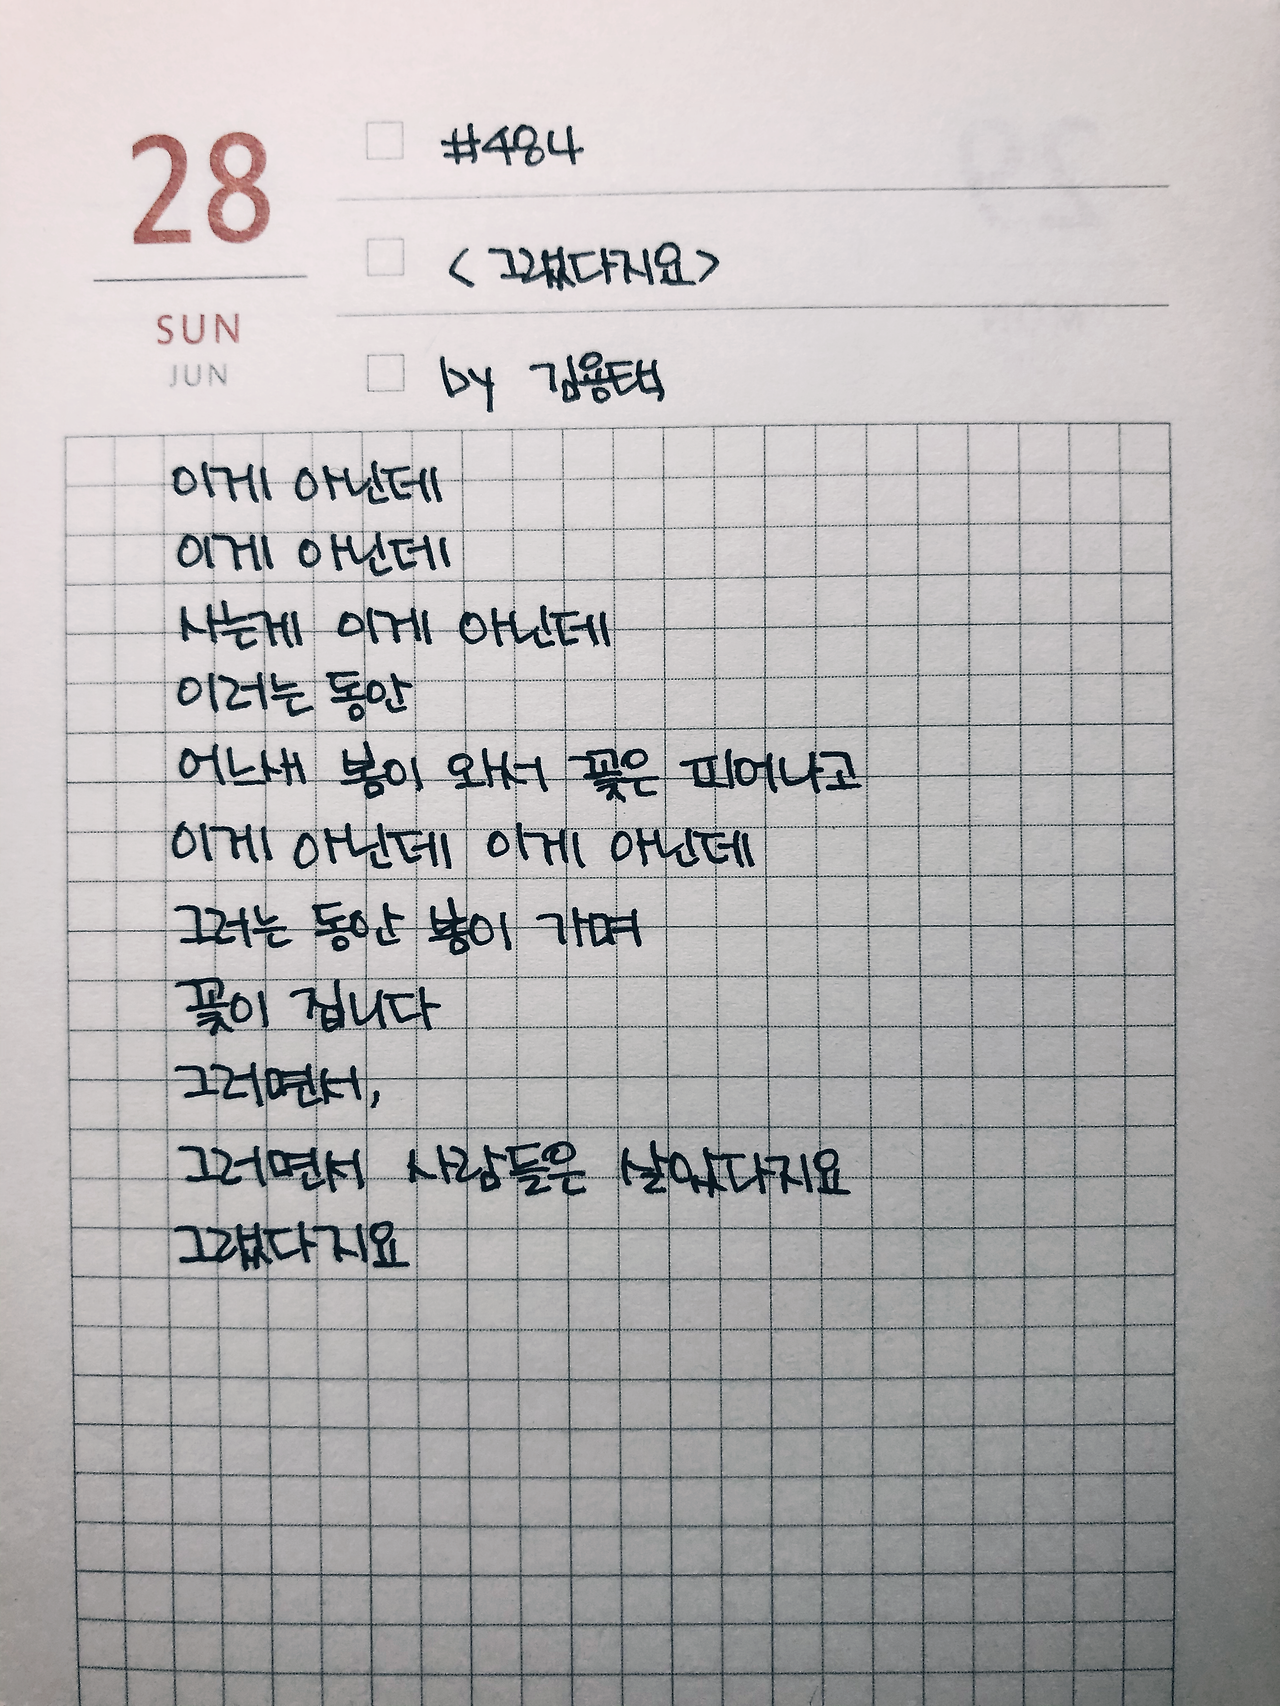 28
SUN
JUN
#484
<그랬다지요>
by 김용택
이게 아닌데
이게 아닌데
사는게 이게 아닌데
이러는 동안
어느새 봄이 와서 꽃은 피어나고
이게 아닌데 이게 아닌데
그러는 동안 봄이 가며
꽃이 집니다
그러면서,
그러면서 사람들은 살았다지요
그랬다지요